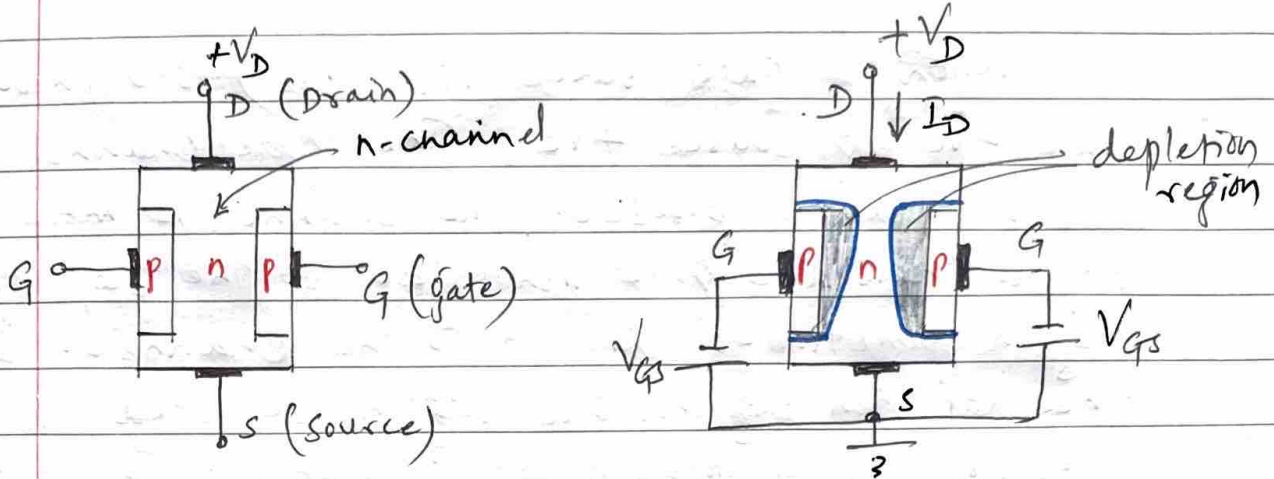 +V_D
D (Drain)
n-channel
G
p n p
G (gate)
S (source)
+V_D
D
I_D
depletion
region
G
p n p
G
V_GS
V_GS
S